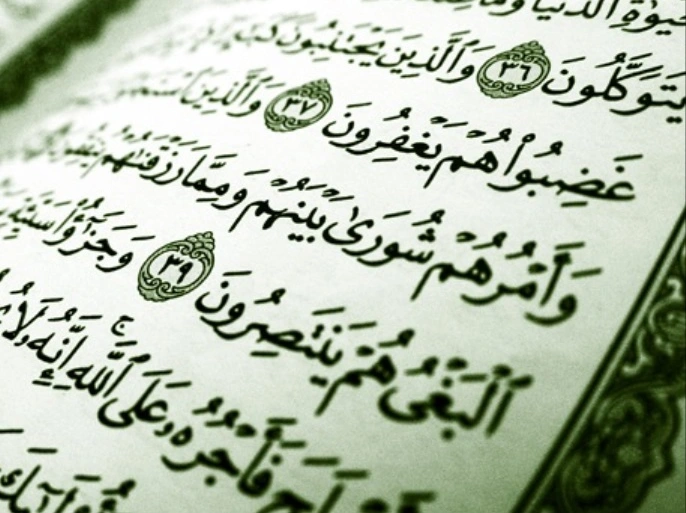 الدُّنْيَا وَمَا
يَتَوَكَّلُونَ ٣٦ وَٱلَّذِينَ يَجْتَنِبُونَ
غَضِبُوا۟ هُمْ يَغْفِرُونَ ٣٧ وَٱلَّذِينَ
وَأَمْرُهُمْ شُورَىٰ بَيْنَهُمْ وَمِمَّا رَزَقْنَٰهُمْ
ٱلْبَغْىُ هُمْ يَنتَصِرُونَ ٣٩ وَجَزَٰٓؤُا۟ سَيِّئَةٍ
فَأَجْرُهُۥ عَلَى ٱللَّهِ ۚ إِنَّهُۥ لَا